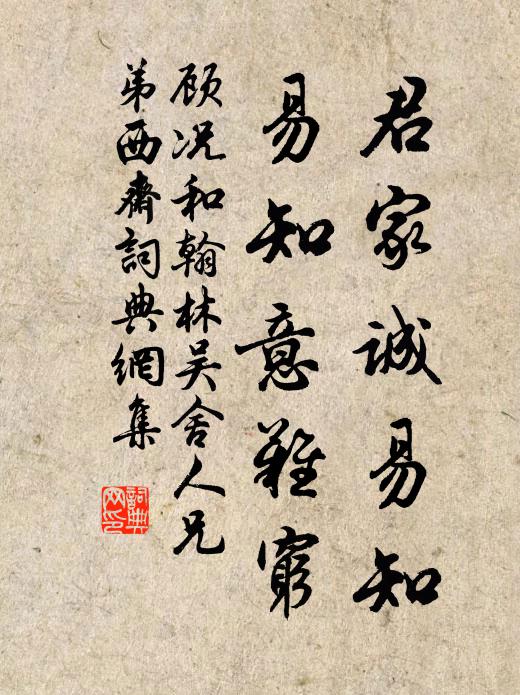 君家诚易知
易知意难穷
顾况和翰林吴舍人兄
弟西斋詞典網集
詞典
网印